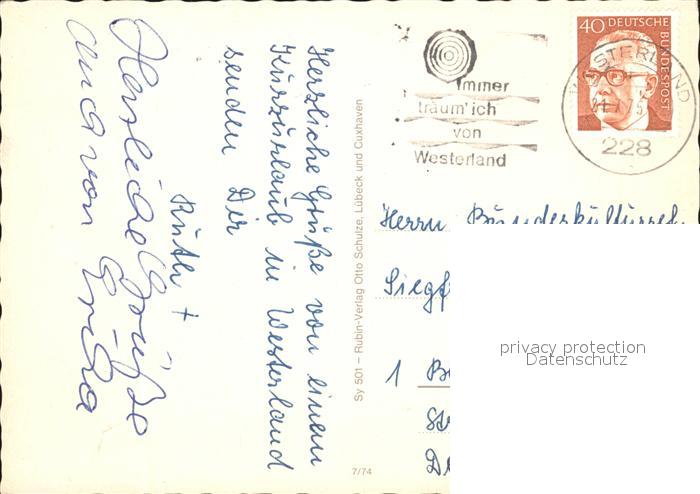 40 DEUTSCHE
BUNDESPOST
WESTERLAND
228
Immer
träum' ich
von
Westerland
Herzliche Grüße von einem
Kurzurlaub in Westerland
senden Dir
Ruth +
Herzliche Grüße
auch von Erika
Sy 501 – Rubin-Verlag Otto Schulze, Lübeck und Cuxhaven
7/74
Herrn
Siegf
1 B
St
De
privacy protection
Datenschutz